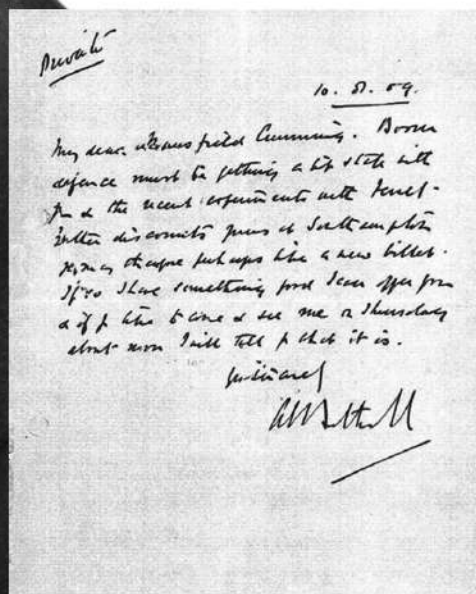 Private
10. 8. 09.
My dear Mansfield Cumming. Boom
defence must be getting a bit stale with
you & the recent experiments with Ferret
rather discounts yours at Southampton
You may therefore perhaps like a new billet.
If so I have something good I can offer you
& if you like to come & see me on Thursday
about noon I will tell you what it is.
Yours sincerely
Bethell